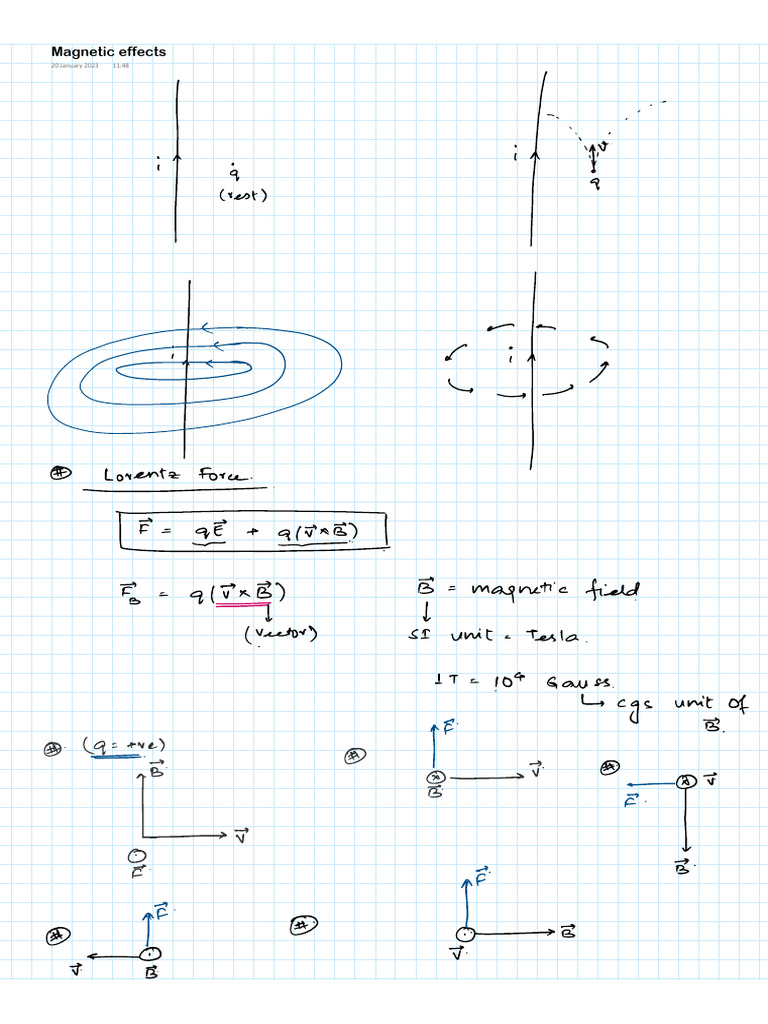 Magnetic effects
20 January 2023 11:48
i
q
(rest)
i
v
q
i
i
# Lorentz Force.
F⃗ = qE⃗ + q(v⃗ × B⃗)
F⃗_B = q(v⃗ × B⃗)
(vector)
B⃗ = magnetic field
SI unit = Tesla.
1T = 10⁴ Gauss.
↳ cgs unit of B⃗.
# (q = +ve)
B⃗
v⃗
F⃗
#
F⃗
B⃗
v⃗
#
v⃗
F⃗
B⃗
#
F⃗
v⃗
B⃗
#
F⃗
v⃗
B⃗